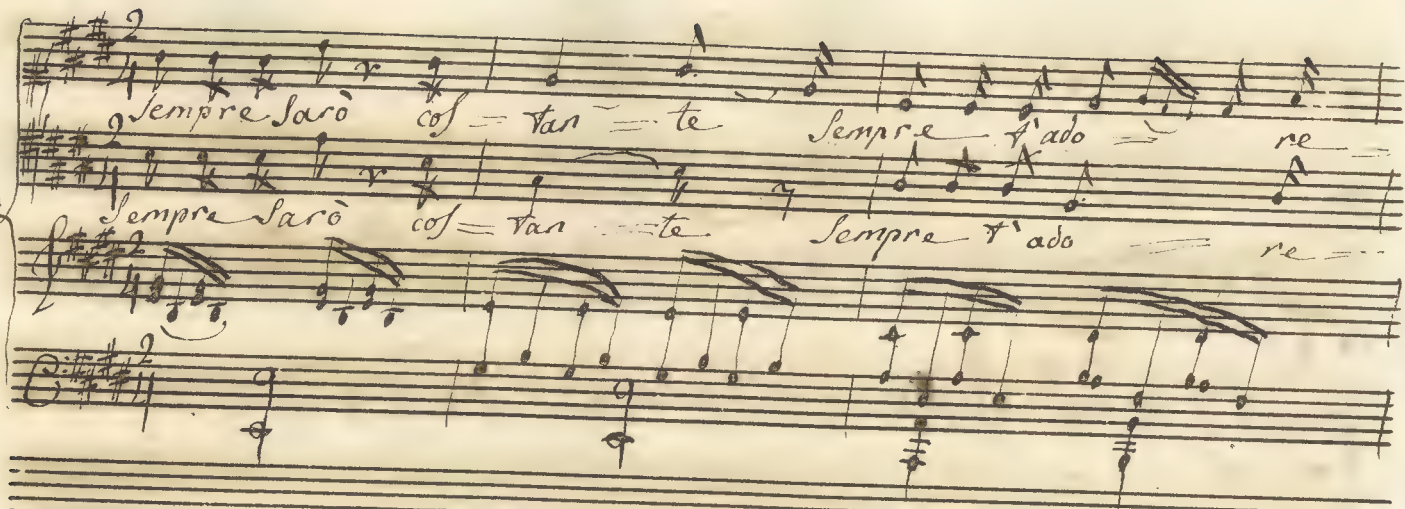 Sempre Sarò cos = tan = te Sempre t'ado = re =
Sempre Sarò cos = tan = te Sempre t'ado = re =